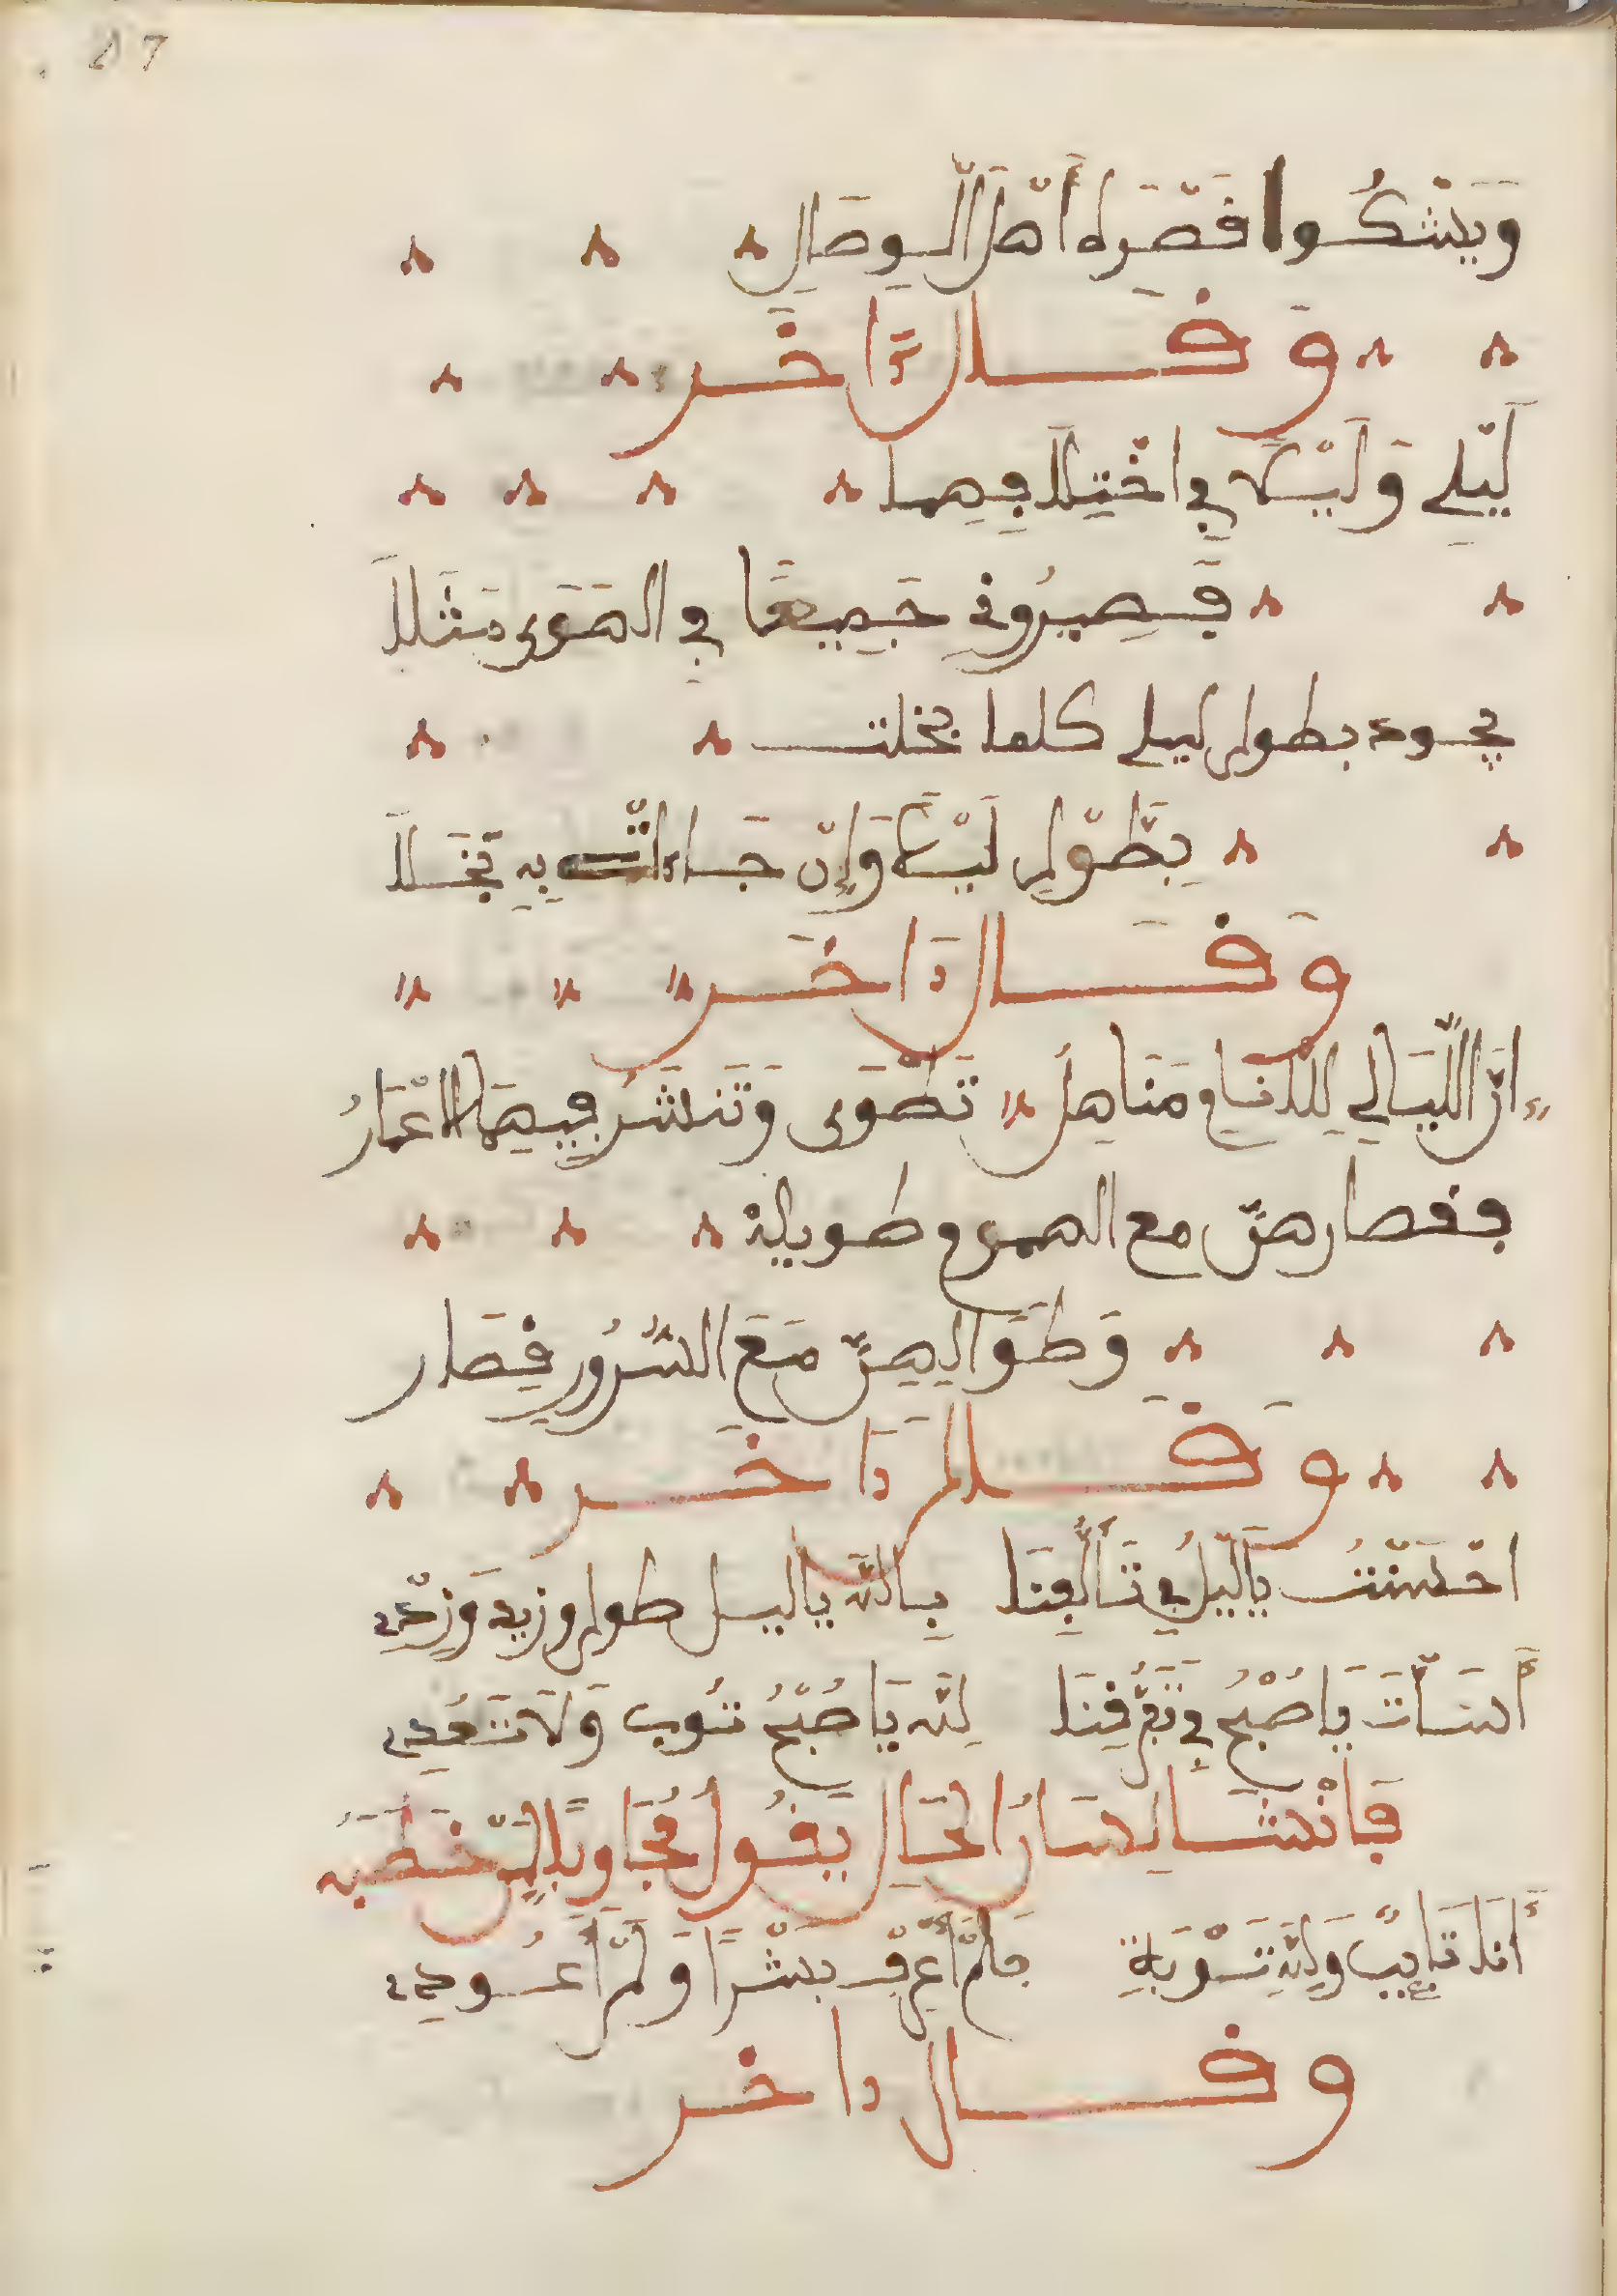 87
وَيَشْكُوا قَصْرَهُ أَهْلُ الْوِصَالِ
وَقَالَ ءَاخَر
لَيْلِي وَلَيْلَى فِي اخْتِلَافِهِمَا
قَصِيرُونِي جَمِيعًا فِي الهَوَى مَثَلَا
يجود بطول ليلي كلما بخلت
بِطُوْلِ لَيْلَى وَإِنْ جَاءَتْ بِهِ بَخَلَا
وَقَال ءاخَر
إنَّ اللَّيَالِي لِلْانَامِ مَنَاهِلٌ تُطْوَى وَتُنْشَرُ فِيهَا الاعْمَارُ
فقصارهنّ مع الهموم طويلة
وَطِوَالُهِنَّ مَعَ السُّرُورِ قِصَار
وَقَال ءَاخَر
احْسَنْتَ يَاليْلُ فِي تَأَلُّفِنَا بِاللَّهِ ياليل طول وزيد وَزِدْ
أَسَأْتَ يَا صُبْحُ فِي تَفَرُّقِنَا لِلَّهِ يَا صُبْحُ تُوب وَلَا تَعُدِ
فَانْشَا لِسَانُ الحَالِ يَقُولُ مُجَاوِبًا لِمَنْ خَطَبَه
أَنَا تَايِبٌ وَلِلَّهِ تَوْبَةِ مَا لَمْ أَعْرِفْ بَشَرًا وَلَمْ أَعُودِ
وقال ءاخر